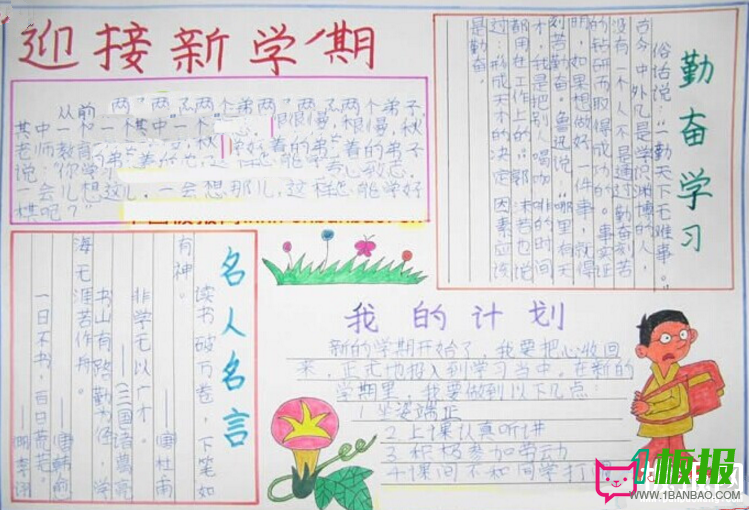 迎接新学期
从前
两个弟子
其中一个
老师教育
说：你学习
一会儿想这儿，一会想那儿，这样怎能学好
棋吧？"
勤奋学习
俗话说，"一勤天下无难事。"
古今中外，凡是学识渊博的人，
没有一个人不是通过勤奋刻苦
的钻研而取得成功的。事实证
明，如果想做好一件事，就得
刻苦勤奋。鲁迅说"哪里有天
才，我是把别人喝咖啡的时间
都用在工作上的"郭沫若也说
过：形成天才的决定因素应该
是勤奋。
名人名言
读书破万卷，下笔如
有神。
——唐杜甫
非学无以广才。
——(三国诸葛亮
书山有路勤为径，学
海无涯苦作舟。
——唐韩愈
一日不书，百日荒芜。
——明李诩
我的计划
新的学期开始了，我要把心收回
来，正式地投入到学习当中。在新的
学期里，我要做到以下几点：
1坐姿端正
2.上课认真听讲
3.积极参加劳动
4.课间不和同学打
1板报
WWW.1BANBAO.COM